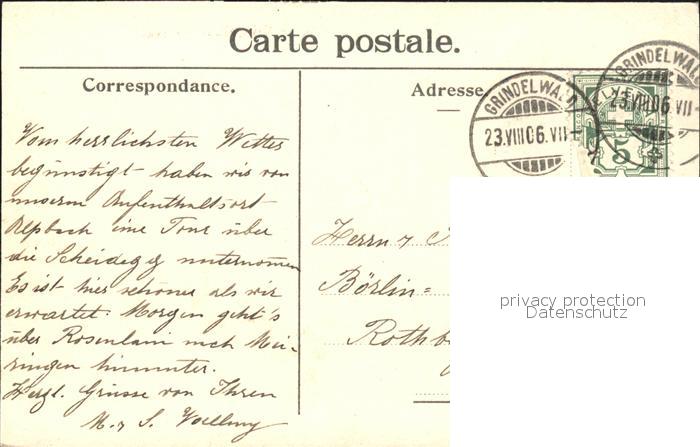 Carte postale.
Correspondance.
Adresse
GRINDELWALD
23.VIII 06.VII
GRINDELWALD
23.VIII 06.VII
5
Vom herrlichsten Wetter
begünstigt haben wir von
unserm Aufenthaltsort
Alpbach eine Tour über
die Scheidegg unternomen
Es ist hier schöner als wir
erwartet. Morgen geht's
über Rosenlaui nach Mei-
ringen hinunter.
Herzl. Grüsse von Ihren
M. & S.
Herrn &
Börlin=
Rothb
privacy protection
Datenschutz